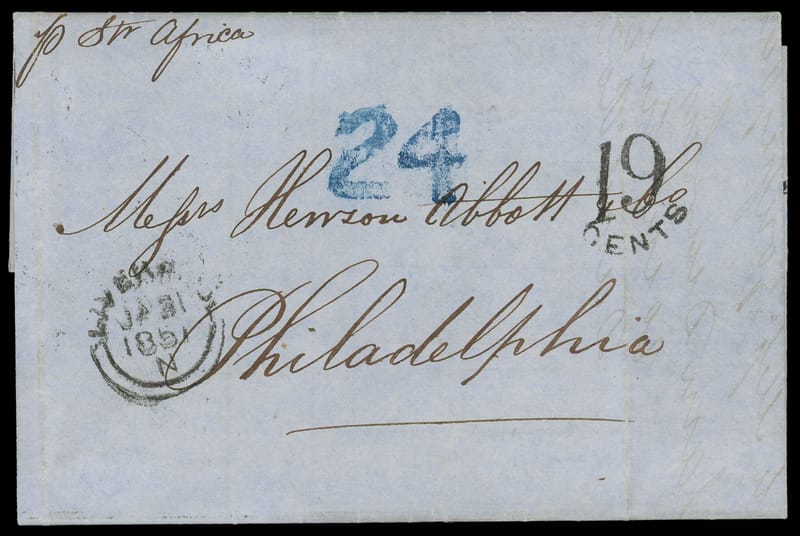 p Str Africa
24
19
CENTS
Messrs Henson Abbott & Co
LIVERP
JA 31
1851
N
Philadelphia